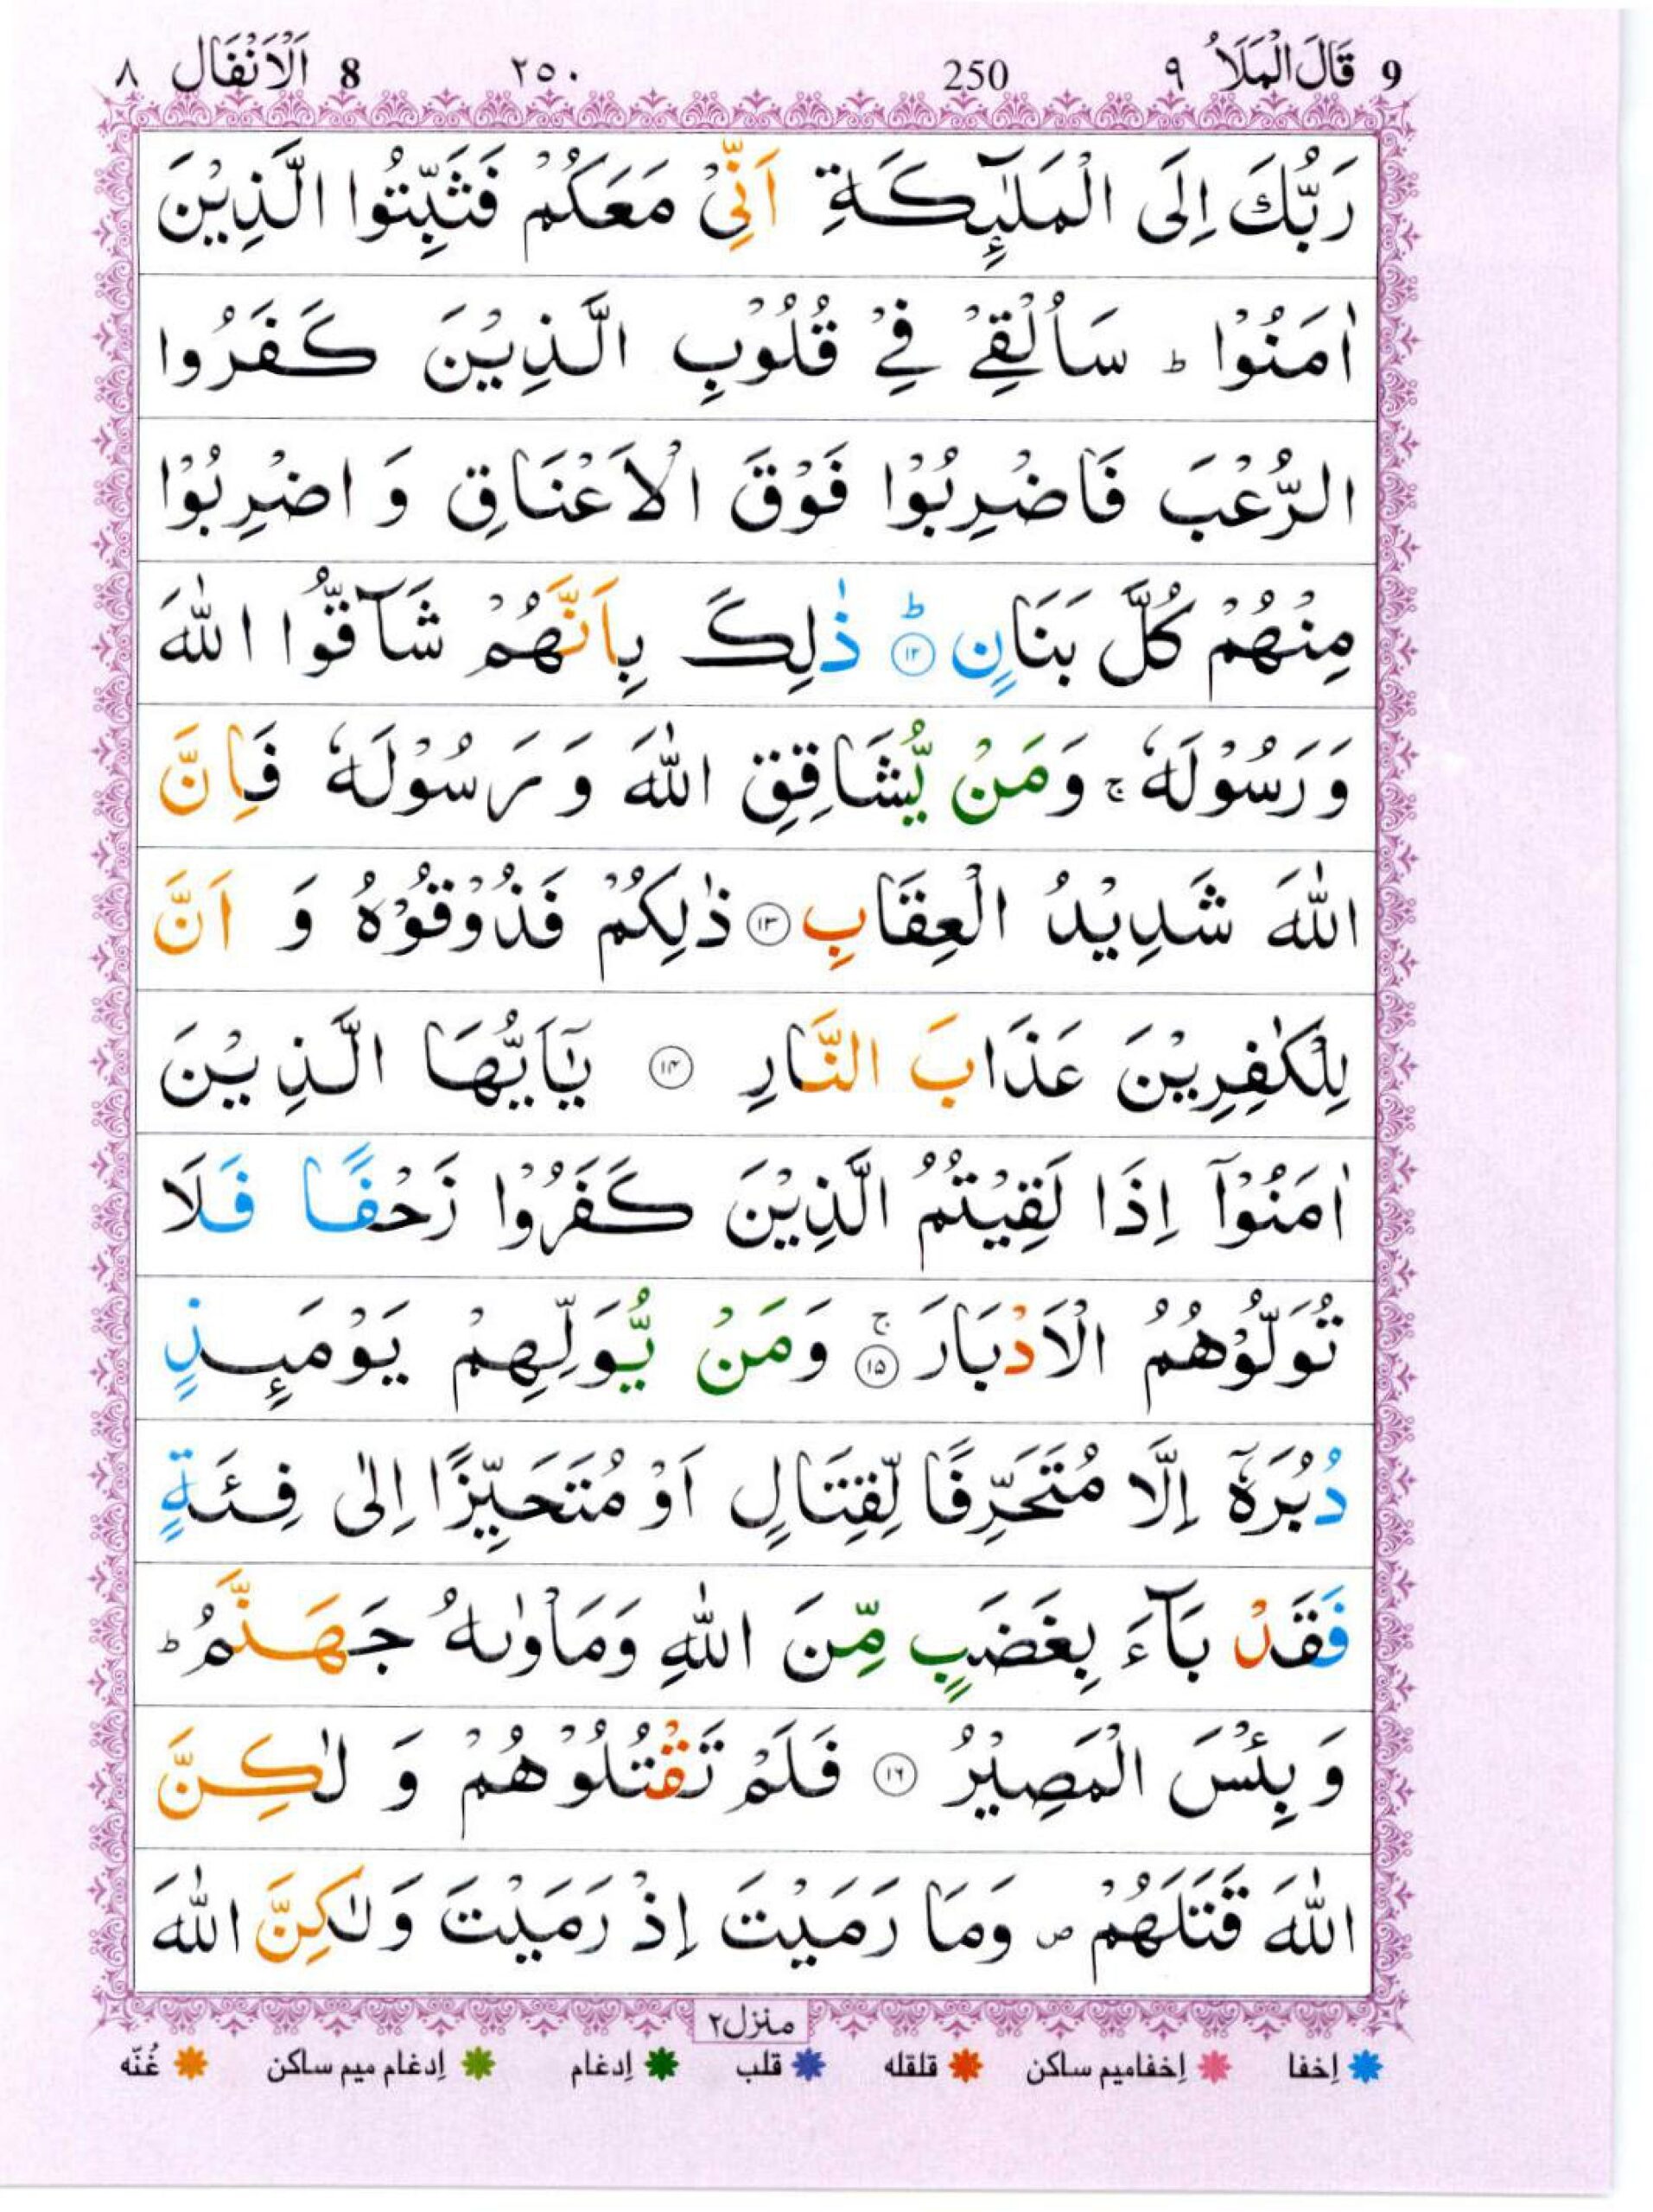 9 قَالَ الْمَلَاُ ٩ 250 ٢٥٠ 8 اَلْاَنْفَال ٨
رَبُّكَ اِلَى الْمَلٰٓئِكَةِ اَنِّيْ مَعَكُمْ فَثَبِّتُوا الَّذِيْنَ
اٰمَنُوْا ؕ سَاُلْقِيْ فِيْ قُلُوْبِ الَّذِيْنَ كَفَرُوا
الرُّعْبَ فَاضْرِبُوْا فَوْقَ الْاَعْنَاقِ وَ اضْرِبُوْا
مِنْهُمْ كُلَّ بَنَانٍ ؕ ﴿١٢﴾ ذٰلِكَ بِاَنَّهُمْ شَآقُّوا اللّٰهَ
وَرَسُوْلَهٗ ۚ وَمَنْ يُّشَاقِقِ اللّٰهَ وَ رَسُوْلَهٗ فَاِنَّ
اللّٰهَ شَدِيْدُ الْعِقَابِ ﴿١٣﴾ ذٰلِكُمْ فَذُوْقُوْهُ وَ اَنَّ
لِلْكٰفِرِيْنَ عَذَابَ النَّارِ ﴿١٤﴾ يٰٓاَيُّهَا الَّذِيْنَ
اٰمَنُوْٓا اِذَا لَقِيْتُمُ الَّذِيْنَ كَفَرُوْا زَحْفًا فَلَا
تُوَلُّوْهُمُ الْاَدْبَارَ ۚ ﴿١٥﴾ وَمَنْ يُّوَلِّهِمْ يَوْمَئِذٍ
دُبُرَهٗٓ اِلَّا مُتَحَرِّفًا لِّقِتَالٍ اَوْ مُتَحَيِّزًا اِلٰى فِئَةٍ
فَقَدْ بَآءَ بِغَضَبٍ مِّنَ اللّٰهِ وَمَاْوٰىهُ جَهَنَّمُ ؕ
وَ بِئْسَ الْمَصِيْرُ ﴿١٦﴾ فَلَمْ تَقْتُلُوْهُمْ وَ لٰكِنَّ
اللّٰهَ قَتَلَهُمْ ۪ وَمَا رَمَيْتَ اِذْ رَمَيْتَ وَلٰكِنَّ اللّٰهَ
منزل ٢
اِخفا اِخفا ميم ساكن قلقله قلب اِدغام اِدغام ميم ساكن غُنّه